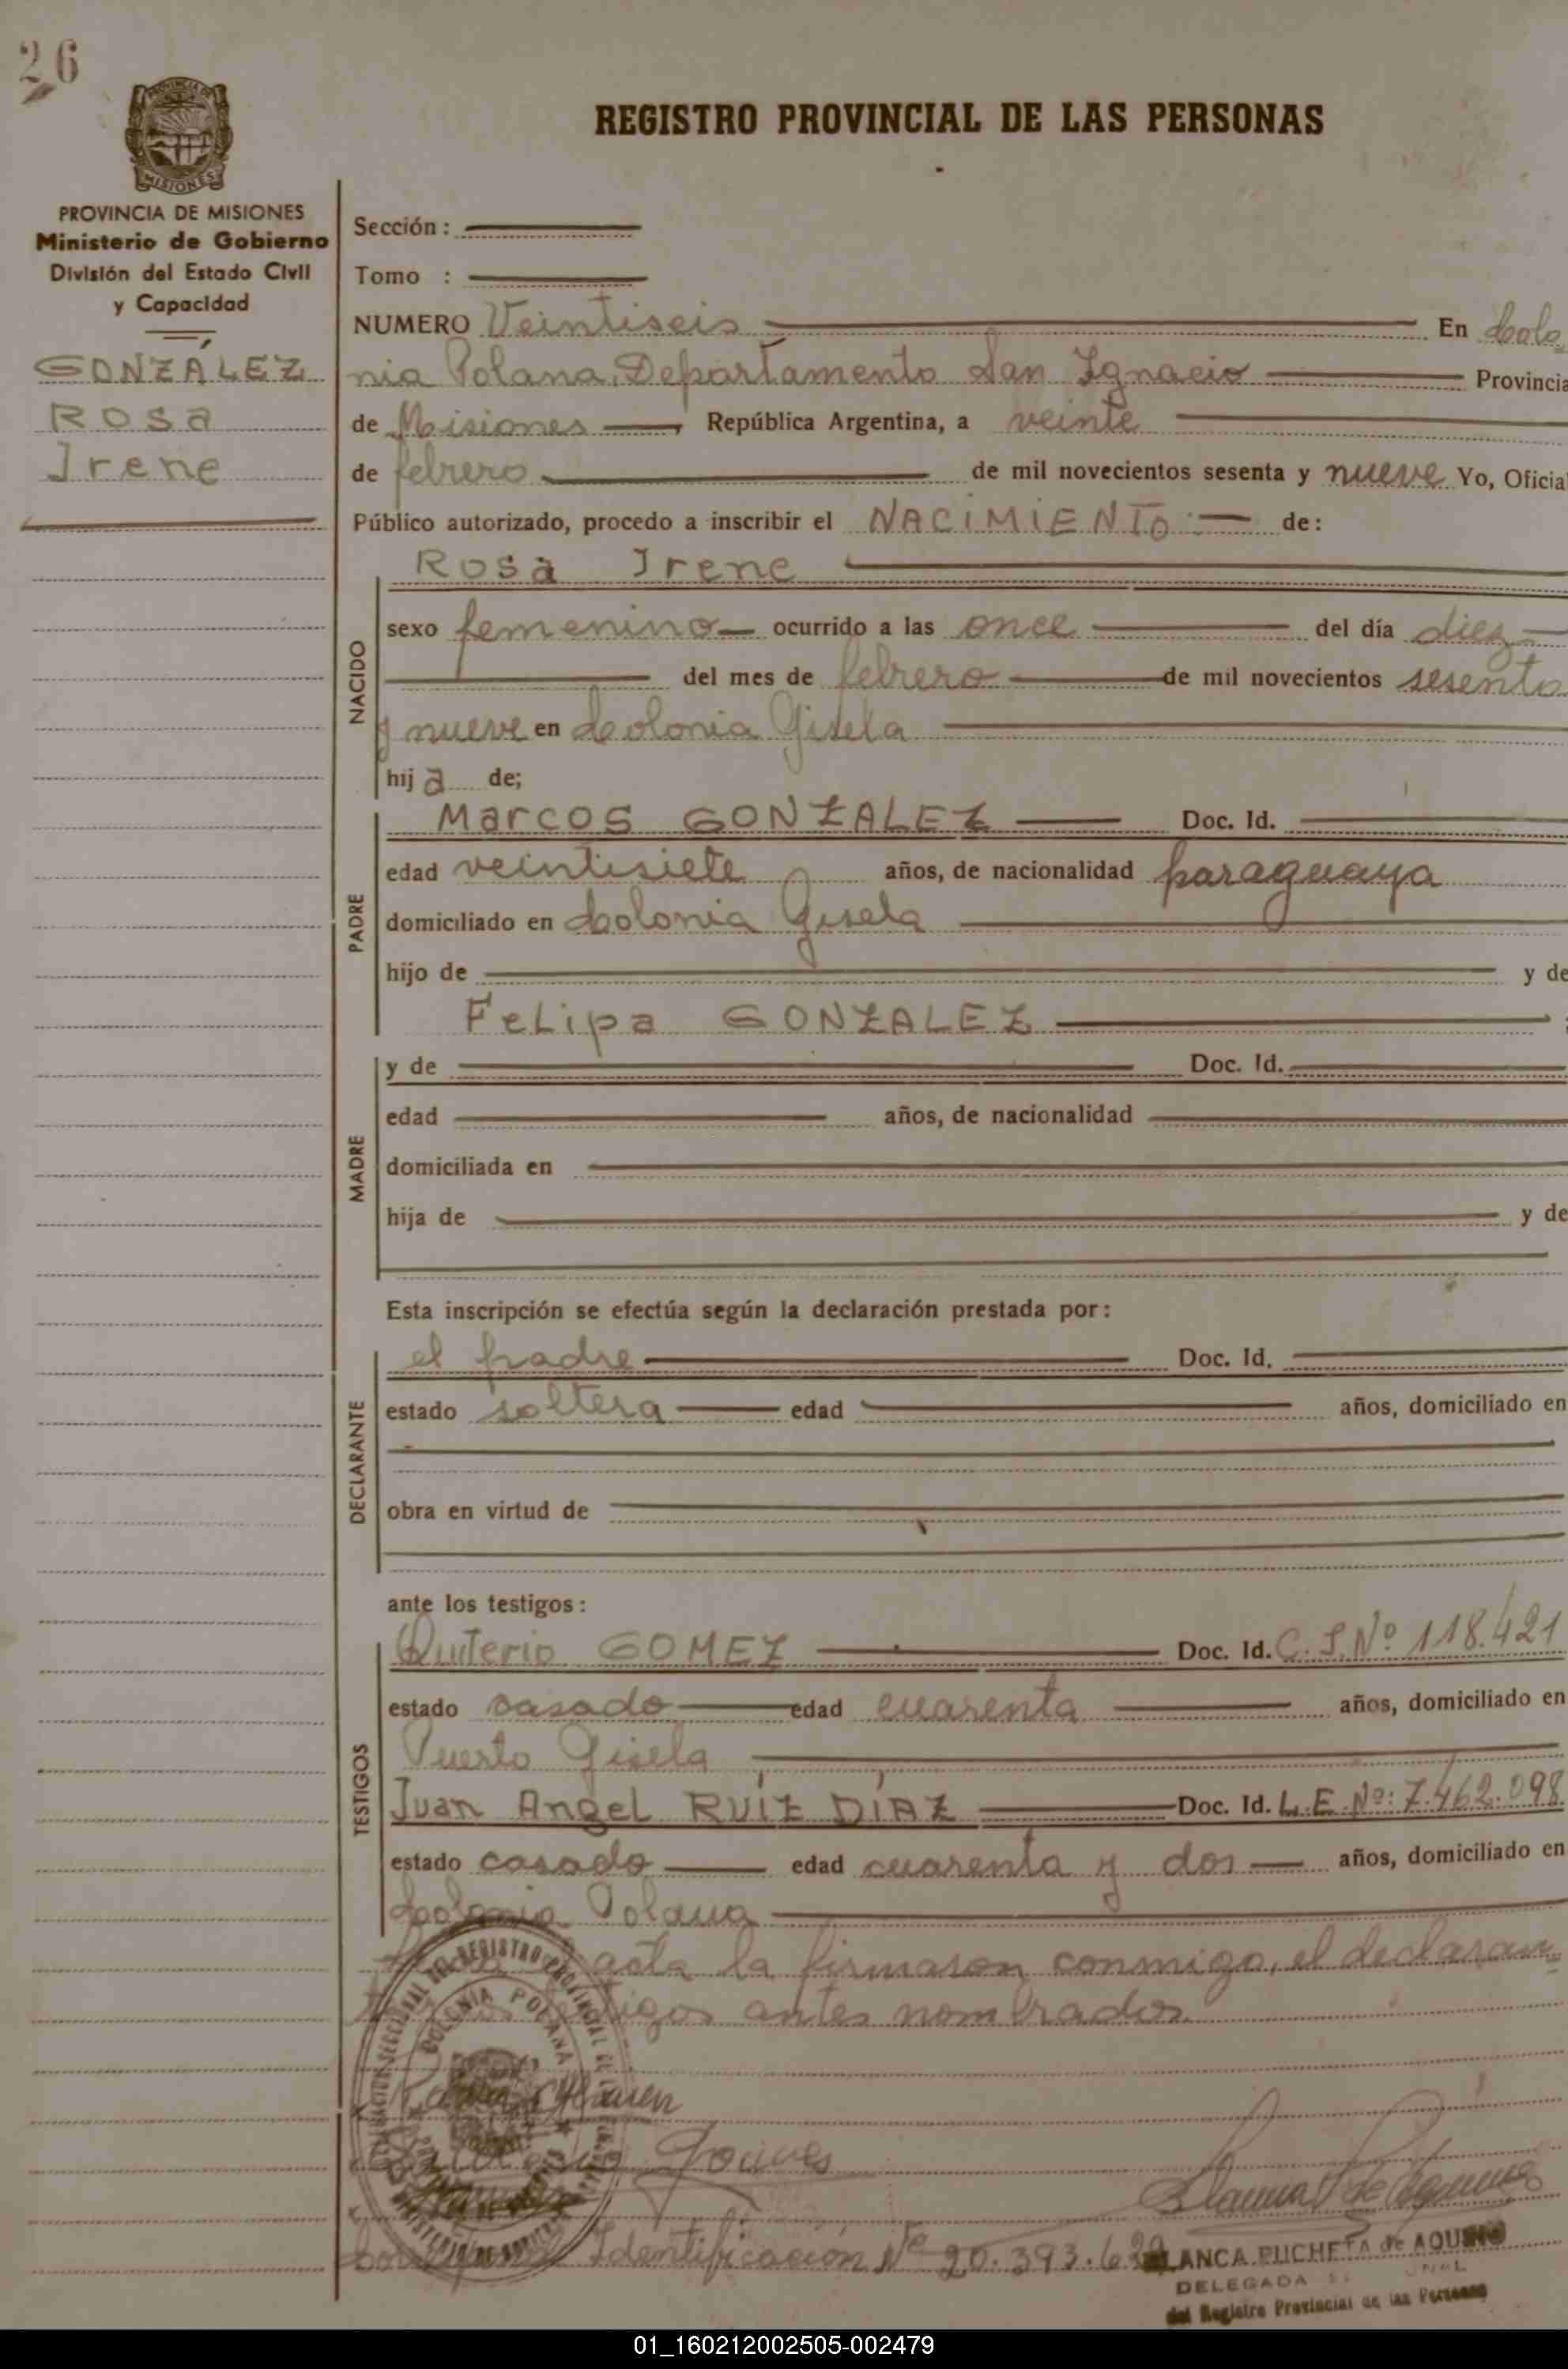 26
REGISTRO PROVINCIAL DE LAS PERSONAS
PROVINCIA DE MISIONES
MISIONES
PROVINCIA DE MISIONES
Ministerio de Gobierno
División del Estado Civil
y Capacidad
GONZÁLEZ
Rosa
Irene
Sección :
Tomo :
NUMERO Veintiseis En Colo
nia Polana, Departamento San Ignacio Provincia
de Misiones República Argentina, a veinte
de febrero de mil novecientos sesenta y nueve Yo, Oficial
Público autorizado, procedo a inscribir el NACIMIENTO de:
NACIDO
Rosa Irene
sexo femenino ocurrido a las once del día diez
del mes de febrero de mil novecientos sesenta
y nueve en Colonia Gisela
hija de;
PADRE
Marcos GONZALEZ Doc. Id.
edad veintisiete años, de nacionalidad paraguaya
domiciliado en Colonia Gisela
hijo de y de
Felipa GONZALEZ
MADRE
y de Doc. Id.
edad años, de nacionalidad
domiciliada en
hija de y de
Esta inscripción se efectúa según la declaración prestada por:
DECLARANTE
el padre Doc. Id.
estado soltera edad años, domiciliado en
obra en virtud de
ante los testigos:
TESTIGOS
Quiterio GOMEZ Doc. Id. C. I. Nº 118.421
estado casado edad cuarenta años, domiciliado en
Puerto Gisela
Juan Angel RUÍZ DÍAZ Doc. Id. L.E. Nº: 7.462.098
estado casado edad cuarenta y dos años, domiciliado en
Colonia Polana
acta la firmaron conmigo, el declaran
testigos antes nombrados.
COLONIA POLANA
Gomes
Identificación Nº 20.393.6
BLANCA PUCHETA de AQUINO
DELEGADA
del Registro Provincial de las Personas
01_160212002505-002479